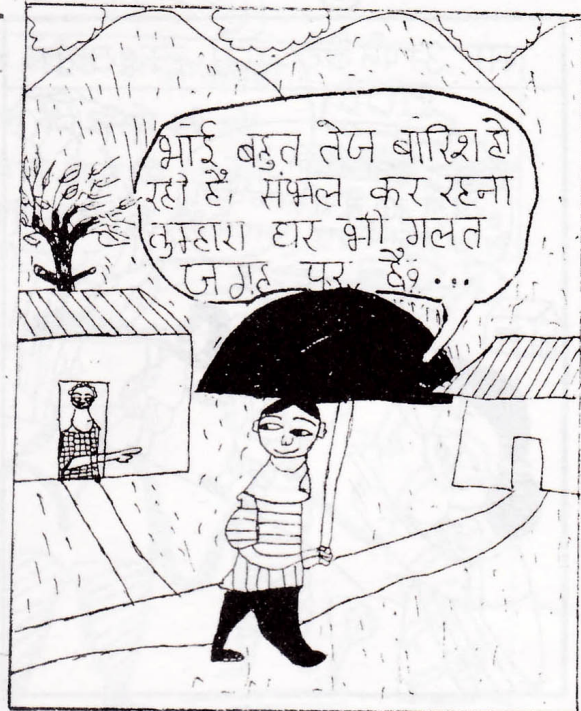 भाई बहुत तेज बारिश हो
रही है, संभल कर रहना
तुम्हारा घर भी गलत
जगह पर है। ...